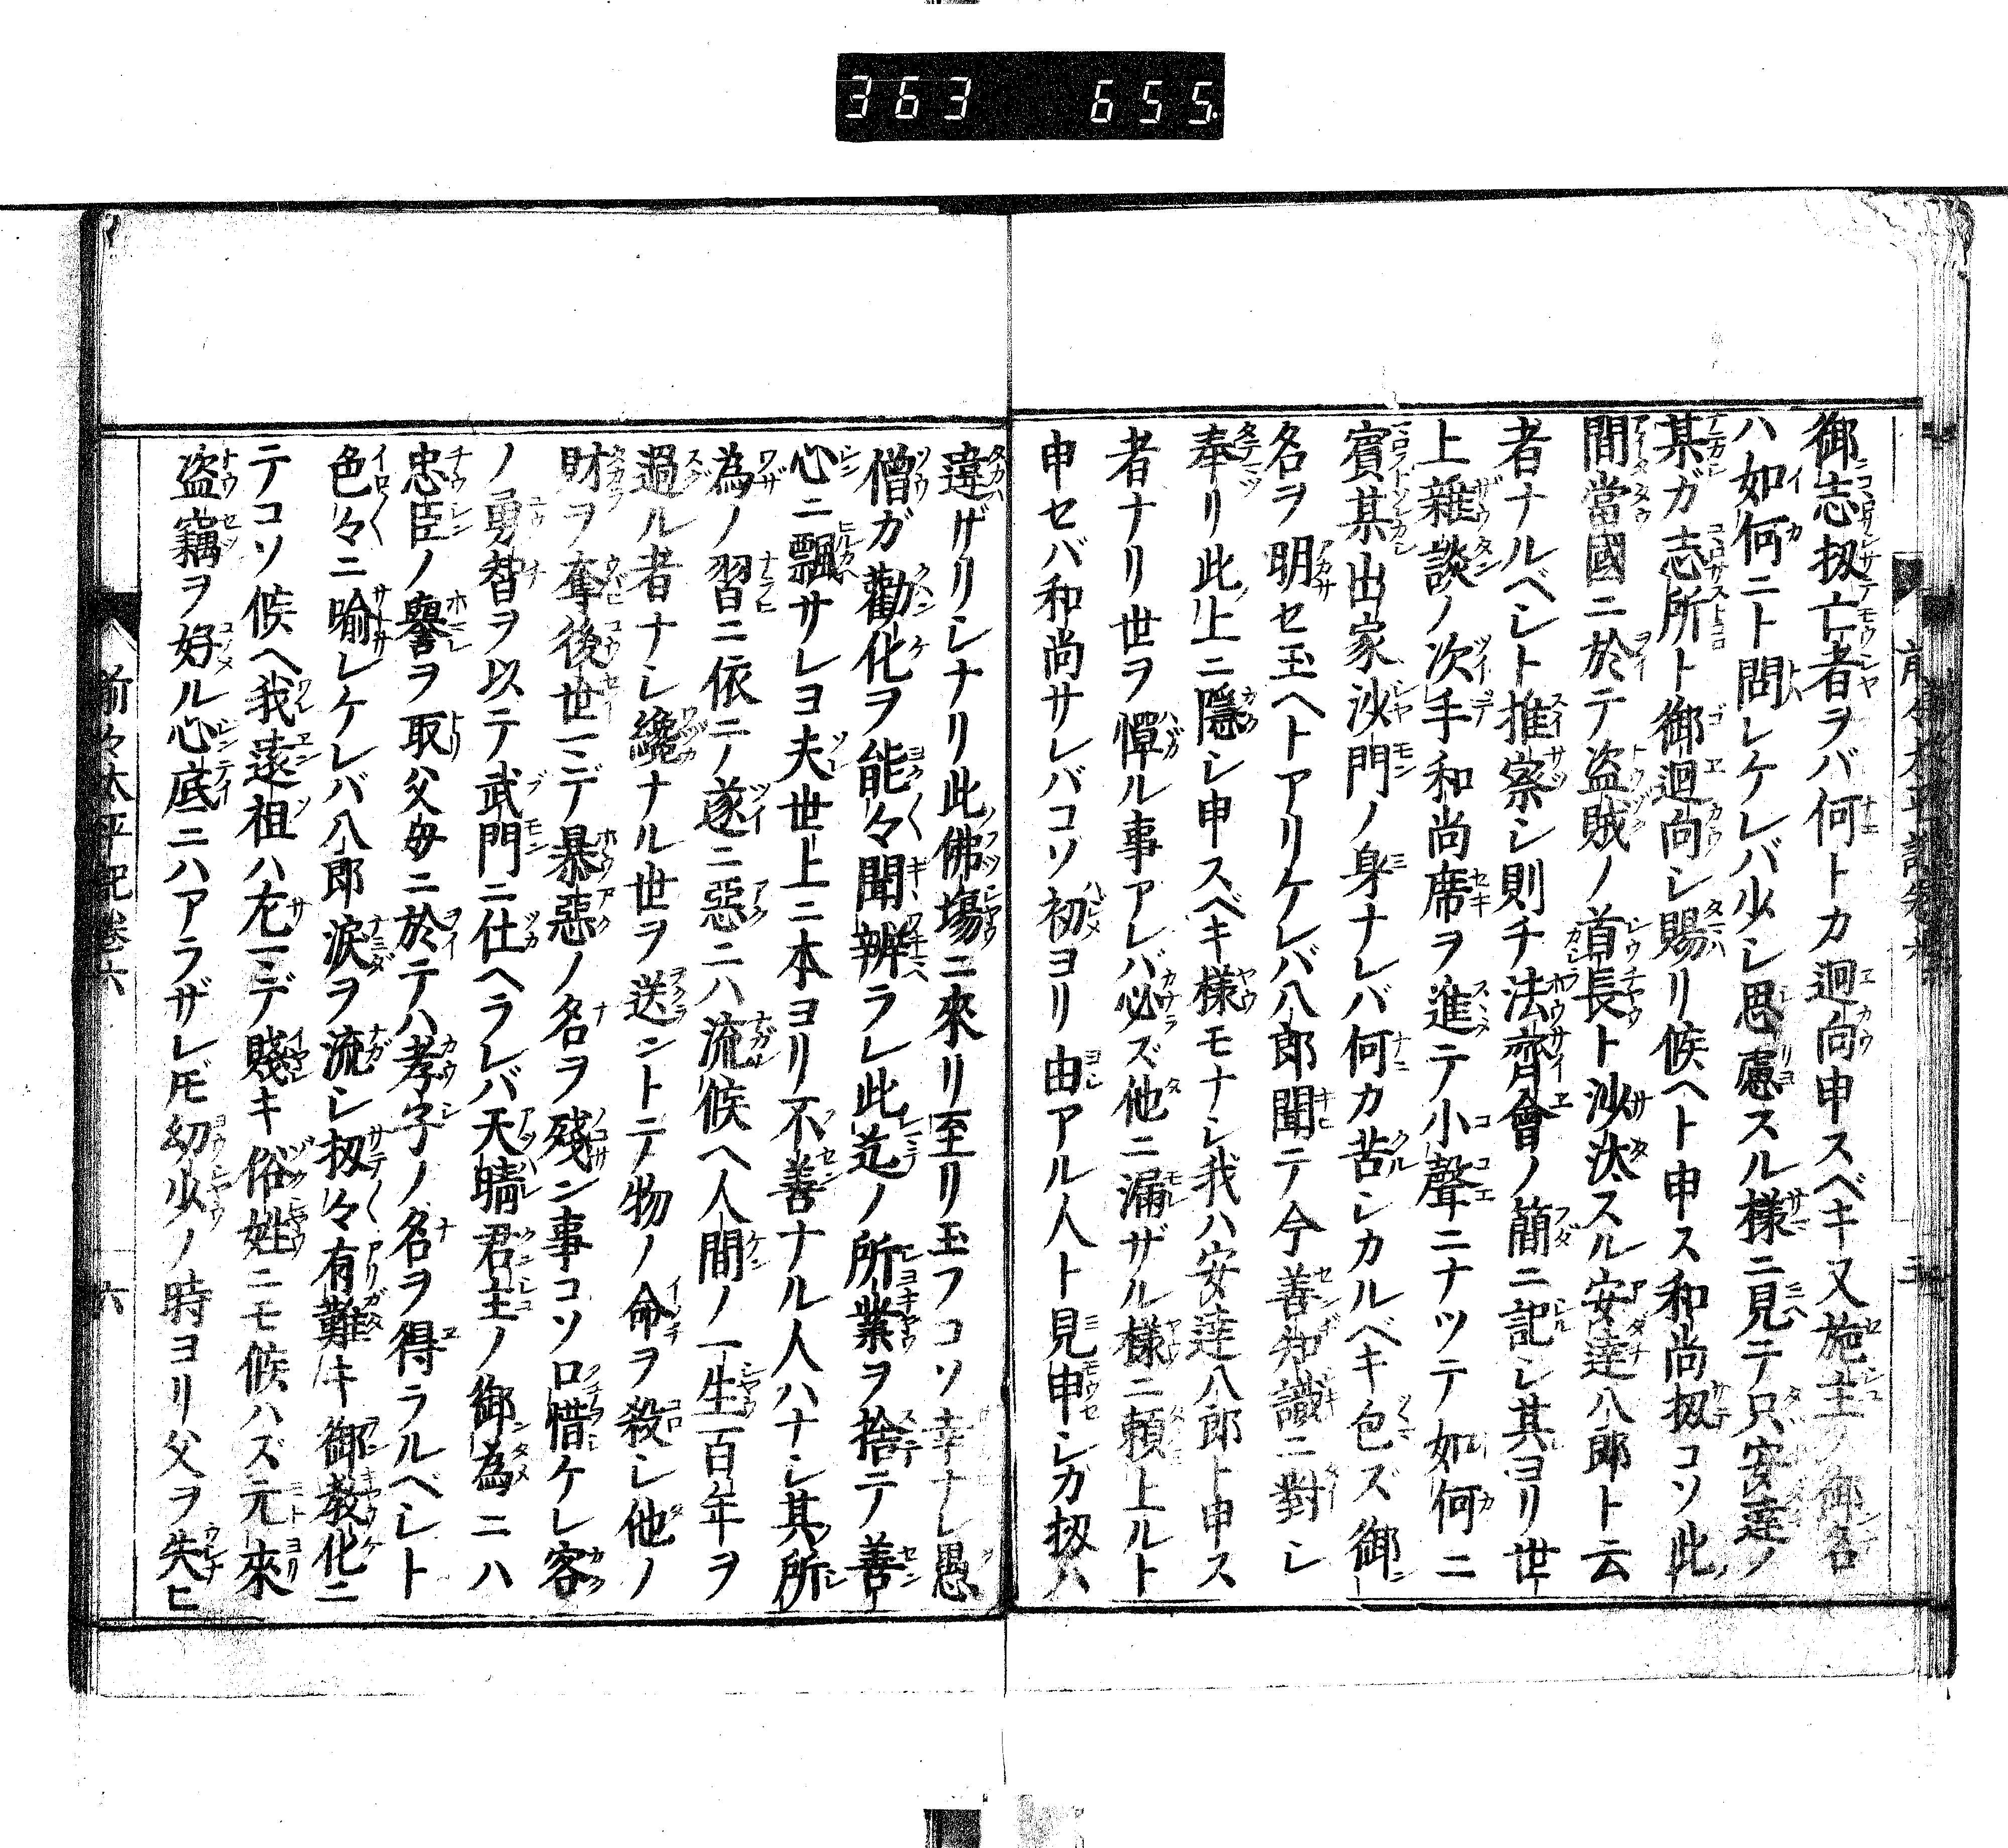 363 655
御志扨亡者ヲバ何トカ迴向申スベキ又施主ノ御名
ハ如何ニト問レケレバ少シ思慮スル様ニ見テ只安達ノ
某ガ志所ト御迴向シ賜リ候ヘト申ス和尚扨コソ此
間當國ニ於テ盗賊ノ首長ト沙汰スル安達八郎ト云
者ナルベシト推察シ則チ法齊會ノ簡ニ記シ其ヨリ世
上雜談ノ次手和尚席ヲ進テ小聲ニナツテ如何ニ
賓某出家沙門ノ身ナレバ何カ苦シカルベキ包ズ御
名ヲ明セ玉ヘトアリケレバ八郎聞テ今善知識ニ對シ
奉リ此上ニ隱シ申スベキ様モナシ我ハ安達八郎ト申ス
者ナリ世ヲ憚ル事アレバ必ズ他ニ漏ザル様ニ頼上ルト
申セバ和尚サレバコソ初ヨリ由アル人ト見申シガ扨ハ
違ザリシナリ此佛場ニ來リ至リ玉フコソ幸ナレ愚
僧ガ勸化ヲ能々聞辨ラレ此迄ノ所業ヲ捨テ善
心ニ飄サレヨ夫世上ニ本ヨリ不善ナル人ハナシ其所
為ノ習ニ依テ遂ニ惡ニハ流候ヘ人間ノ一生百年ヲ
過ル者ナシ纔ナル世ヲ送ントテ物ノ命ヲ殺シ他ノ
財ヲ奪後世マデ暴惡ノ名ヲ殘ン事コソ口惜ケレ客
ノ勇智ヲ以テ武門ニ仕ヘラレバ天晴君主ノ御為ニハ
忠臣ノ譽ヲ取父母ニ於テハ孝子ノ名ヲ得ラルベシト
色々ニ喩レケレバ八郎涙ヲ流シ扨々有難キ御教化ニ
テコソ候ヘ我遠祖ハ左マデ賤キ俗姓ニモ候ハズ元來
盗竊ヲ好ル心底ニハアラザレ𪜈幼少ノ時ヨリ父ヲ失ヒ
前々太平記卷六
六